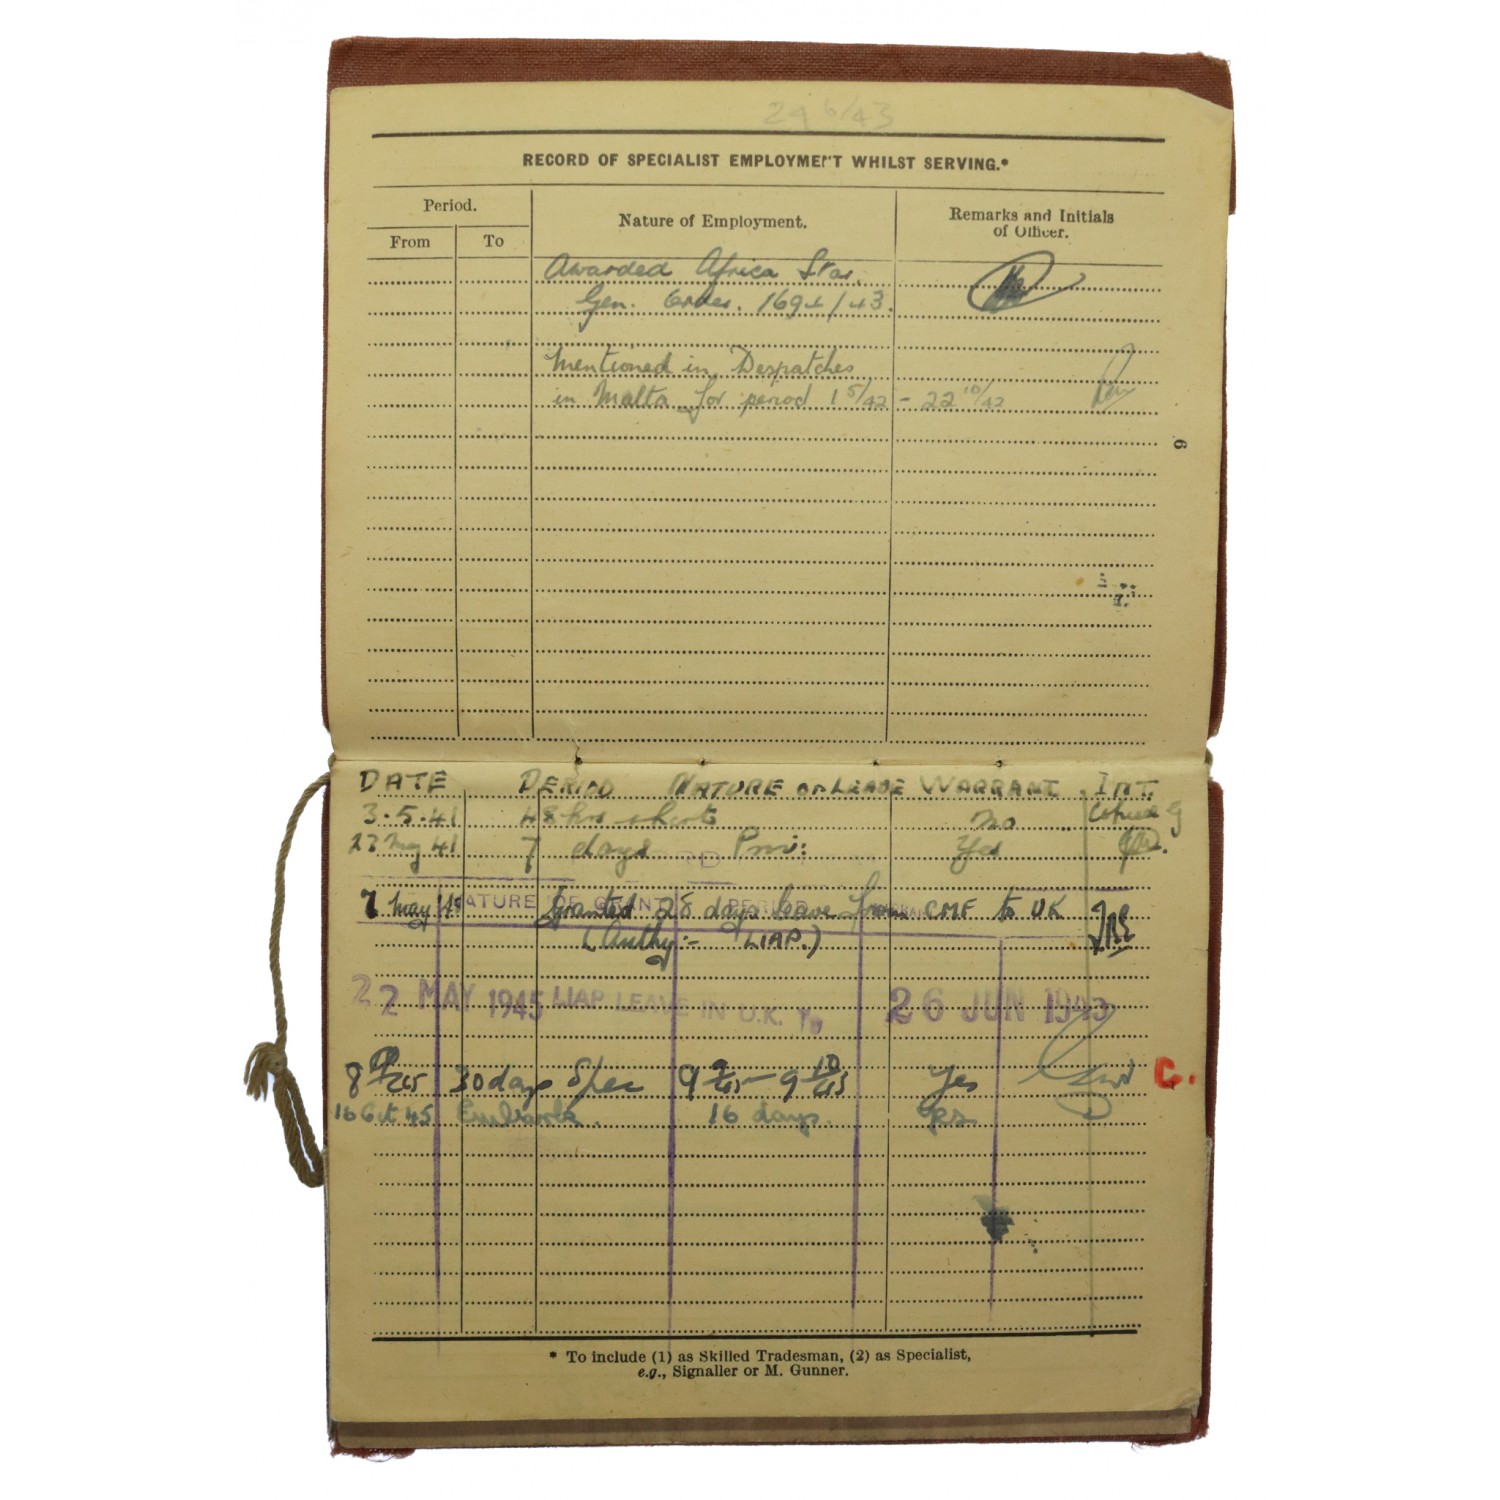 29 6/43
RECORD OF SPECIALIST EMPLOYMENT WHILST SERVING.*
Period.
From To
Nature of Employment.
Remarks and Initials
of Officer.
Awarded Africa Star.
Gen. Order. 1694/43.
Mentioned in Despatches
in Malta for period 1 5/42 - 22 10/42
6
DATE PERIOD NATURE OF LEAVE WARRANT INT.
3.5.41 48 hrs short No Copied
27 May 41 7 days Priv: Yes
7 May 45 Granted 28 days leave from CMF to UK
NATURE OF GRANT PERIOD
(Authy:- LIAP.)
22 MAY 1945 LIAP LEAVE IN U.K. To 26 JUN 1945
8 9/45 30 days 9 9/45 - 9 10/45 Yes G.
16 Oct 45 16 days. Yes
* To include (1) as Skilled Tradesman, (2) as Specialist,
e.g., Signaller or M. Gunner.